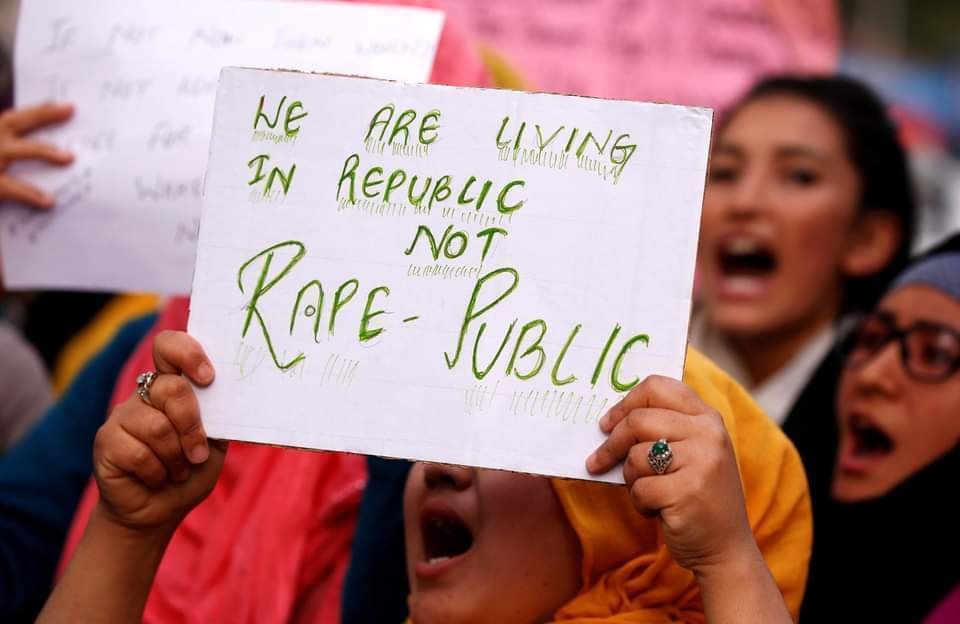 IF NOT NOW THEN WHEN
IF NOT
FOR
WE ARE LIVING
IN REPUBLIC
NOT
RAPE-PUBLIC